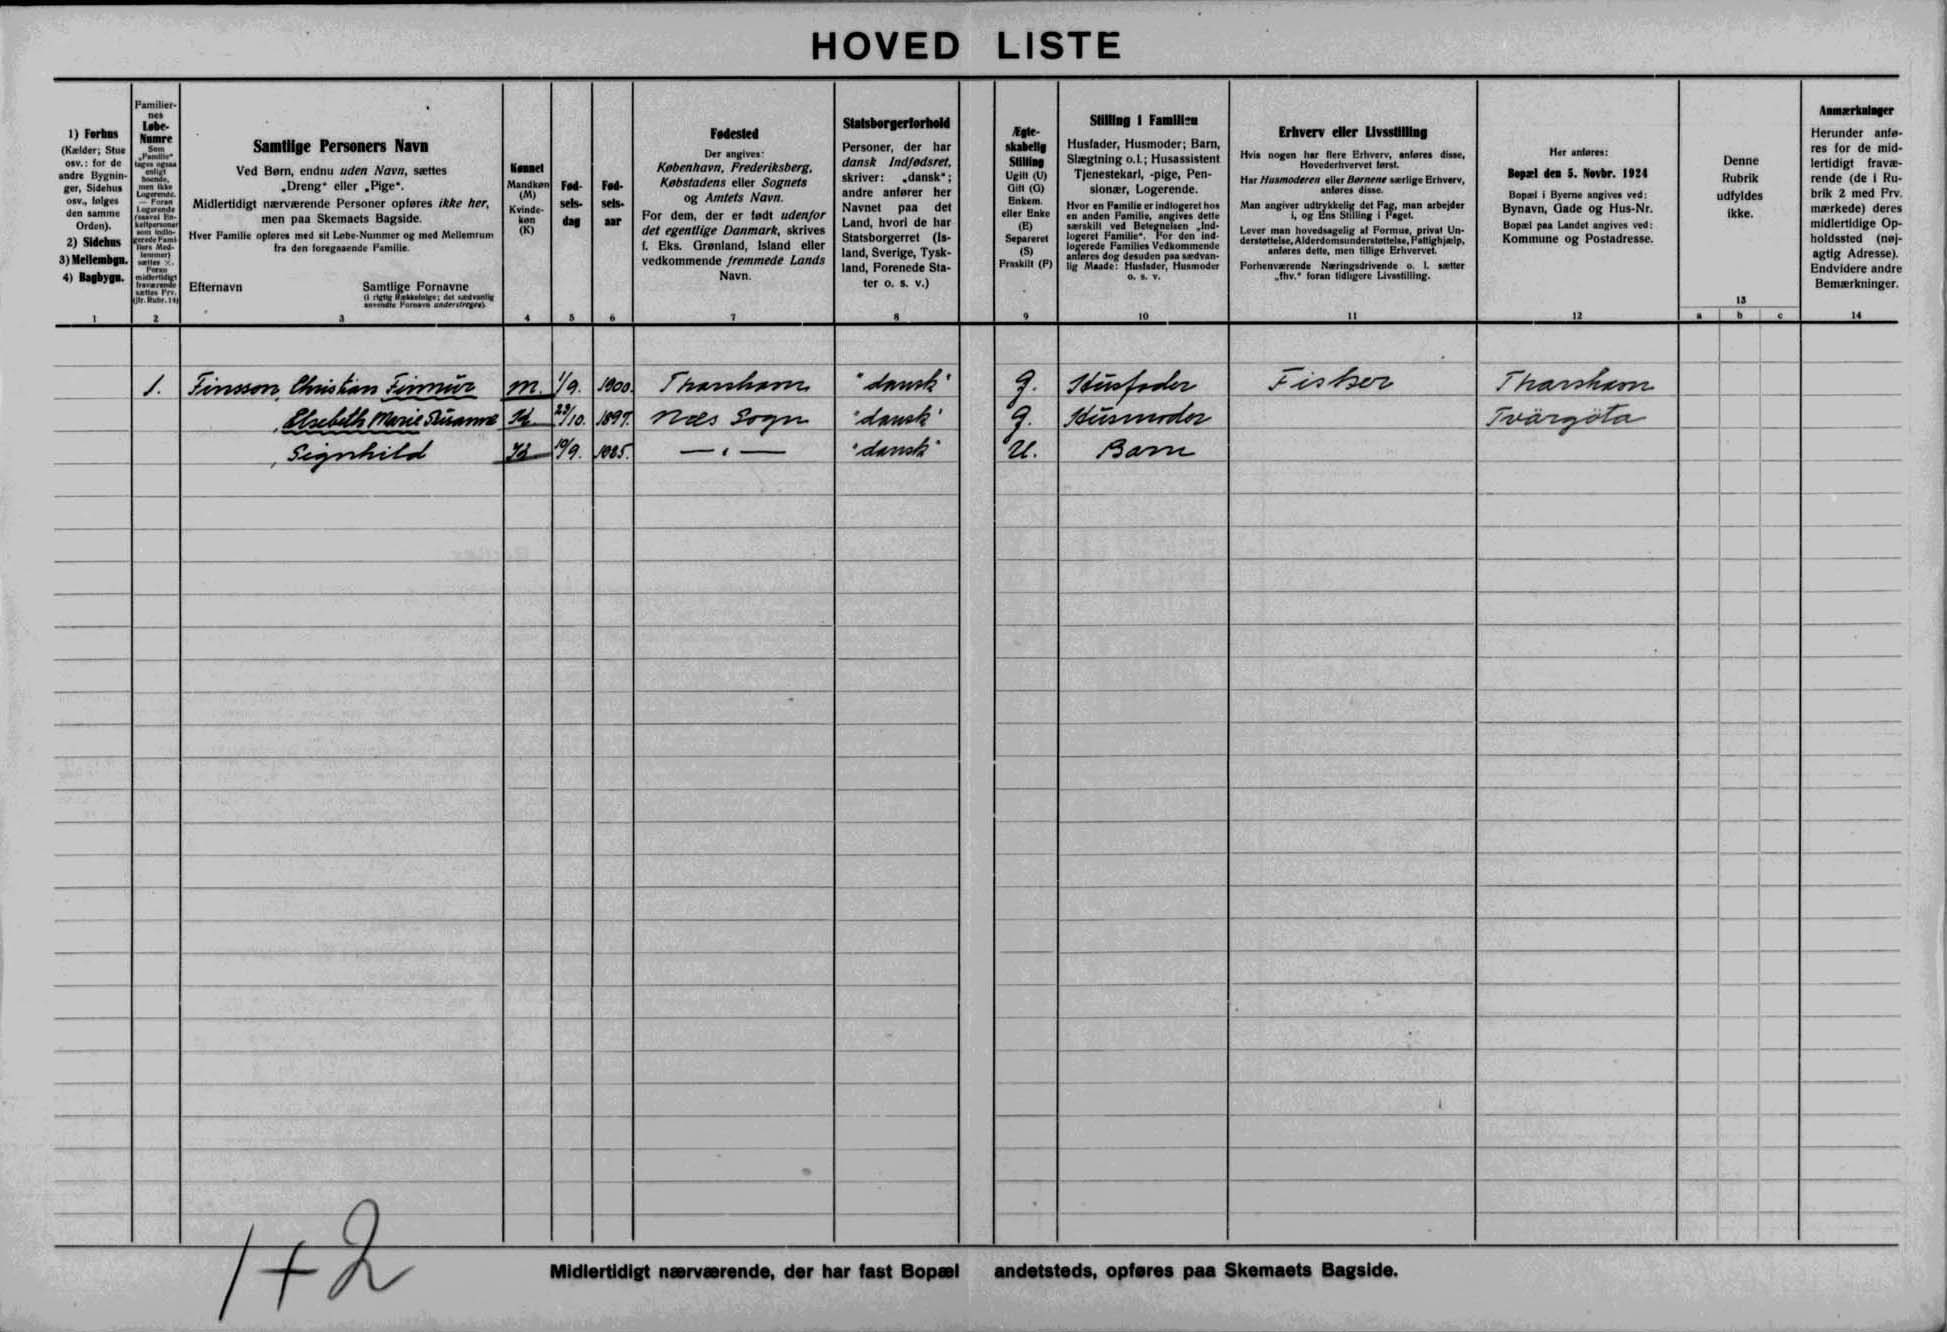 HOVED LISTE
1) Forhus
(Kælder; Stue
osv.: for de
andre Bygnin-
ger, Sidehus
osv., følges
den samme
Orden).
2) Sidehus
3) Mellembgn.
4) Bagbygn.
1
Familier-
nes
Løbe-
Numre
Som
„Familie“
tages ogsaa
enligt
boende,
men ikke
Logerende.
— Foran
Logerende
(saavel En-
keltpersoner
som indlo-
gerede Fami-
liers Med-
lemmer)
sættes ×.
Foran
midlertidigt
fraværende
sættes Frv.
(jfr. Rubr. 14)
2
Samtlige Personers Navn
Ved Børn, endnu uden Navn, sættes
„Dreng“ eller „Pige“.
Midlertidigt nærværende Personer opføres ikke her,
men paa Skemaets Bagside.
Hver Familie opføres med sit Løbe-Nummer og med Mellemrum
fra den foregaaende Familie.
Efternavn Samtlige Fornavne
(i rigtig Rækkefølge; det sædvanlig
anvendte Fornavn understreges).
3
Kønnet
Mandkøn
(M)
Kvinde-
køn
(K)
4
Fød-
sels-
dag
5
Fød-
sels-
aar
6
Fødested
Der angives:
København, Frederiksberg,
Købstadens eller Sognets
og Amtets Navn.
For dem, der er født udenfor
det egentlige Danmark, skrives
f. Eks. Grønland, Island eller
vedkommende fremmede Lands
Navn.
7
Statsborgerforhold
Personer, der har
dansk Indfødsret,
skriver: „dansk“;
andre anfører her
Navnet paa det
Land, hvori de har
Statsborgerret (Is-
land, Sverige, Tysk-
land, Forenede Sta-
ter o. s. v.)
8
Ægte-
skabelig
Stilling
Ugift (U)
Gift (G)
Enkem.
eller Enke
(E)
Separeret
(S)
Fraskilt (F)
9
Stilling i Familien
Husfader, Husmoder; Barn,
Slægtning o.l.; Husassistent
Tjenestekarl, -pige, Pen-
sionær, Logerende.
Hvor en Familie er indlogeret hos
en anden Familie, angives dette
særskilt ved Betegnelsen „Ind-
logeret Familie“. For den ind-
logerede Families Vedkommende
anføres dog desuden paa sædvan-
lig Maade: Husfader, Husmoder
o. s. v.
10
Erhverv eller Livsstilling
Hvis nogen har flere Erhverv, anføres disse,
Hovederhvervet først.
Har Husmoderen eller Børnene særlige Erhverv,
anføres disse.
Man angiver udtrykkelig det Fag, man arbejder
i, og Ens Stilling i Faget.
Lever man hovedsagelig af Formue, privat Un-
derstøttelse, Alderdomsunderstøttelse, Fattighjælp,
anføres dette, men tillige Erhvervet.
Forhenværende Næringsdrivende o. l. sætter
„fhv.“ foran tidligere Livsstilling.
11
Her anføres:
Bopæl den 5. Novbr. 1924
Bopæl i Byerne angives ved:
Bynavn, Gade og Hus-Nr.
Bopæl paa Landet angives ved:
Kommune og Postadresse.
12
Denne
Rubrik
udfyldes
ikke.
13
a b c
Anmærkninger
Herunder anfø-
res for de mid-
lertidigt fravæ-
rende (de i Ru-
brik 2 med Frv.
mærkede) deres
midlertidige Op-
holdssted (nøj-
agtig Adresse).
Endvidere andre
Bemærkninger.
14
1. Finsson, Christian Finnur M. 1/9. 1900. Thorshavn "dansk" G. Husfader Fisker Thorshavn
, Elsebeth Marie Susanne K 23/10. 1897. Næs Sogn "dansk" G. Husmoder Tvörgöta
, Signhild K 10/9. 1925. — " — "dansk" U. Barn
1+2
Midlertidigt nærværende, der har fast Bopæl andetsteds, opføres paa Skemaets Bagside.